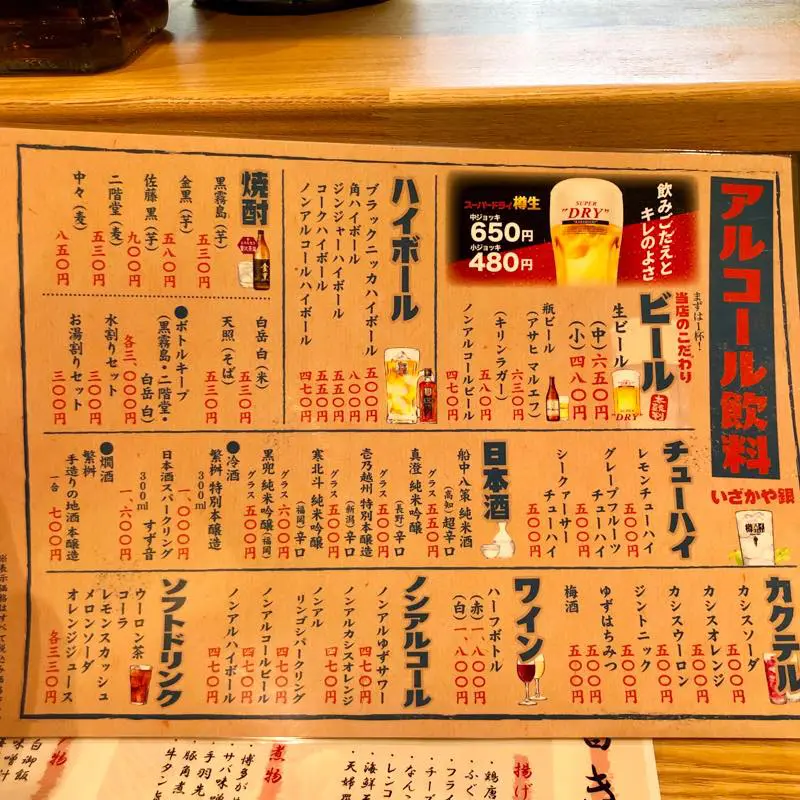 アルコール飲料
いざかや銀
飲みごたえと
キレのよさ
SUPER
"DRY"
スーパードライ 樽生
中ジョッキ
650円
小ジョッキ
480円
まずは1杯!
当店のこだわり
ビール
生ビール
(中)六五〇円
(小)四八〇円
瓶ビール
(アサヒ マルエフ)
六三〇円
(キリンラガー)
五八〇円
ノンアルコールビール
四七〇円
ハイボール
ブラックニッカハイボール
五〇〇円
角ハイボール
八〇〇円
ジンジャーハイボール
五五〇円
コークハイボール
五五〇円
ノンアルコールハイボール
四七〇円
焼酎
黒霧島(芋)
五三〇円
金黒(芋)
五八〇円
佐藤 黒(芋)
九〇〇円
二階堂(麦)
五三〇円
中々(麦)
八五〇円
白岳 白(米)
五三〇円
天照(そば)
五三〇円
●ボトルキープ
(黒霧島・二階堂・
白岳 白)
各三、〇〇〇円
水割りセット
三〇〇円
お湯割りセット
三〇〇円
チューハイ
レモンチューハイ
五〇〇円
グレープフルーツ
チューハイ
五〇〇円
シークァーサー
チューハイ
五〇〇円
日本酒
船中八策 純米酒
(高知)超辛口
グラス 五五〇円
真澄 純米吟醸
(長野)辛口
グラス 五五〇円
壱乃越州 特別本醸造
(新潟)辛口
グラス 五〇〇円
寒北斗 純米吟醸
(福岡)辛口
グラス 六〇〇円
黒兜 純米吟醸(福岡)
グラス 五〇〇円
●冷酒
繁桝 特別本醸造
300ml
一、〇〇〇円
日本酒スパークリング
300ml すず音
一、六〇〇円
●燗酒
繁桝
手造りの地酒 本醸造
一合 七〇〇円
カクテル
カシスソーダ
五〇〇円
カシスオレンジ
五〇〇円
カシスウーロン
五〇〇円
ジントニック
五〇〇円
ゆずはちみつ
五〇〇円
梅酒
五〇〇円
ワイン
ハーフボトル
(赤)一、八〇〇円
(白)一、八〇〇円
ノンアルコール
ノンアルゆずサワー
四七〇円
ノンアルカシスオレンジ
四七〇円
ノンアル
リンゴシパークリング
四七〇円
ノンアルコールビール
四七〇円
ノンアルハイボール
四七〇円
ソフトドリンク
ウーロン茶
コーラ
レモンスカッシュ
メロンソーダ
オレンジジュース
各三三〇円
※表示価格はすべて税込み価格
揚げ
・鶏唐
・ふぐ
・フライ
・チーズ
・なんこ
・レンコ
・海鮮
・天婦羅
煮物
・博多が
・サバ味噌
・手羽先
・豚角煮
・牛タン
物
白御飯
味噌汁